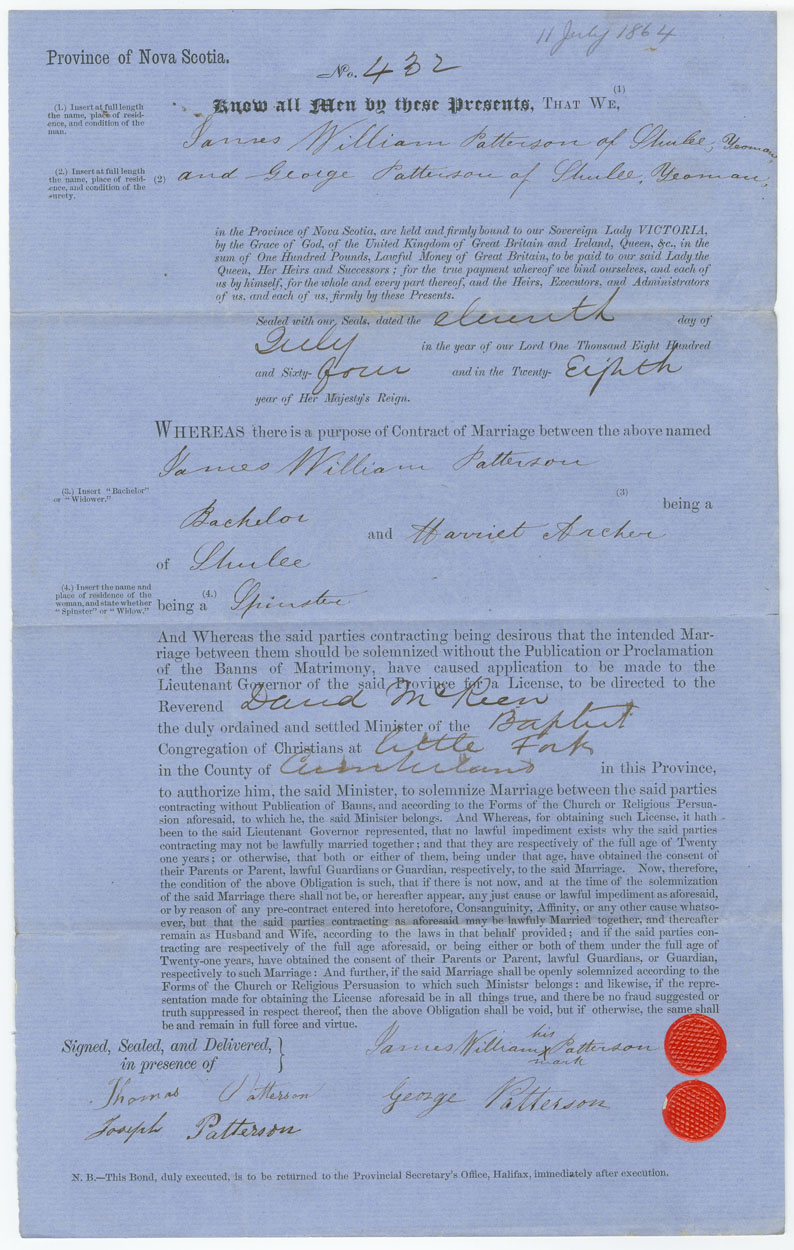 11 July 1864
Province of Nova Scotia.
No. 432
(1.) Insert at full length
the name, place of resid-
ence, and condition of the
man.
Know all Men by these Presents, THAT WE, (1)
James William Patterson of Shulee, Yeoman,
(2.) Insert at full length
the name, place of resid-
ence, and condition of the
surety.
(2) and George Patterson of Shulee, Yeoman,
in the Province of Nova Scotia, are held and firmly bound to our Sovereign Lady VICTORIA,
by the Grace of God, of the United Kingdom of Great Britain and Ireland, Queen, &c., in the
sum of One Hundred Pounds, Lawful Money of Great Britain, to be paid to our said Lady the
Queen, Her Heirs and Successors; for the true payment whereof we bind ourselves, and each of
us by himself, for the whole and every part thereof, and the Heirs, Executors, and Administrators
of us, and each of us, firmly by these Presents.
Sealed with our Seals, dated the eleventh day of
July in the year of our Lord One Thousand Eight Hundred
and Sixty-four and in the Twenty-Eighth
year of Her Majesty's Reign.
WHEREAS there is a purpose of Contract of Marriage between the above named
James William Patterson
(3.) Insert "Bachelor"
or "Widower."
(3) being a
Bachelor and Harriet Archer
of Shulee
(4.) Insert the name and
place of residence of the
woman, and state whether
"Spinster" or "Widow."
being a (4.) Spinster
And Whereas the said parties contracting being desirous that the intended Mar-
riage between them should be solemnized without the Publication or Proclamation
of the Banns of Matrimony, have caused application to be made to the
Lieutenant Governor of the said Province for a License, to be directed to the
Reverend David McKeen
the duly ordained and settled Minister of the Baptist
Congregation of Christians at Little Fork
in the County of Cumberland in this Province,
to authorize him, the said Minister, to solemnize Marriage between the said parties
contracting without Publication of Banns, and according to the Forms of the Church or Religious Persua-
sion aforesaid, to which he, the said Minister belongs. And Whereas, for obtaining such License, it hath
been to the said Lieutenant Governor represented, that no lawful impediment exists why the said parties
contracting may not be lawfully married together; and that they are respectively of the full age of Twenty
one years; or otherwise, that both or either of them, being under that age, have obtained the consent of
their Parents or Parent, lawful Guardians or Guardian, respectively, to the said Marriage. Now, therefore,
the condition of the above Obligation is such, that if there is not now, and at the time of the solemnization
of the said Marriage there shall not be, or hereafter appear, any just cause or lawful impediment as aforesaid,
or by reason of any pre-contract entered into heretofore, Consanguinity, Affinity, or any other cause whatso-
ever, but that the said parties contracting as aforesaid may be lawfuly Married together, and thereafter
remain as Husband and Wife, according to the laws in that behalf provided; and if the said parties con-
tracting are respectively of the full age aforesaid, or being either or both of them under the full age of
Twenty-one years, have obtained the consent of their Parents or Parent, lawful Guardians, or Guardian,
respectively to such Marriage: And further, if the said Marriage shall be openly solemnized according to the
Forms of the Church or Religious Persuasion to which such Ministsr belongs: and likewise, if the repre-
sentation made for obtaining the License aforesaid be in all things true, and there be no fraud suggested or
truth suppressed in respect thereof, then the above Obligation shall be void, but if otherwise, the same shall
be and remain in full force and virtue.
Signed, Sealed, and Delivered,
in presence of
his
James William X Patterson
mark
Thomas Patterson
George Patterson
Joseph Patterson
N. B.—This Bond, duly executed, is to be returned to the Provincial Secretary's Office, Halifax, immediately after execution.